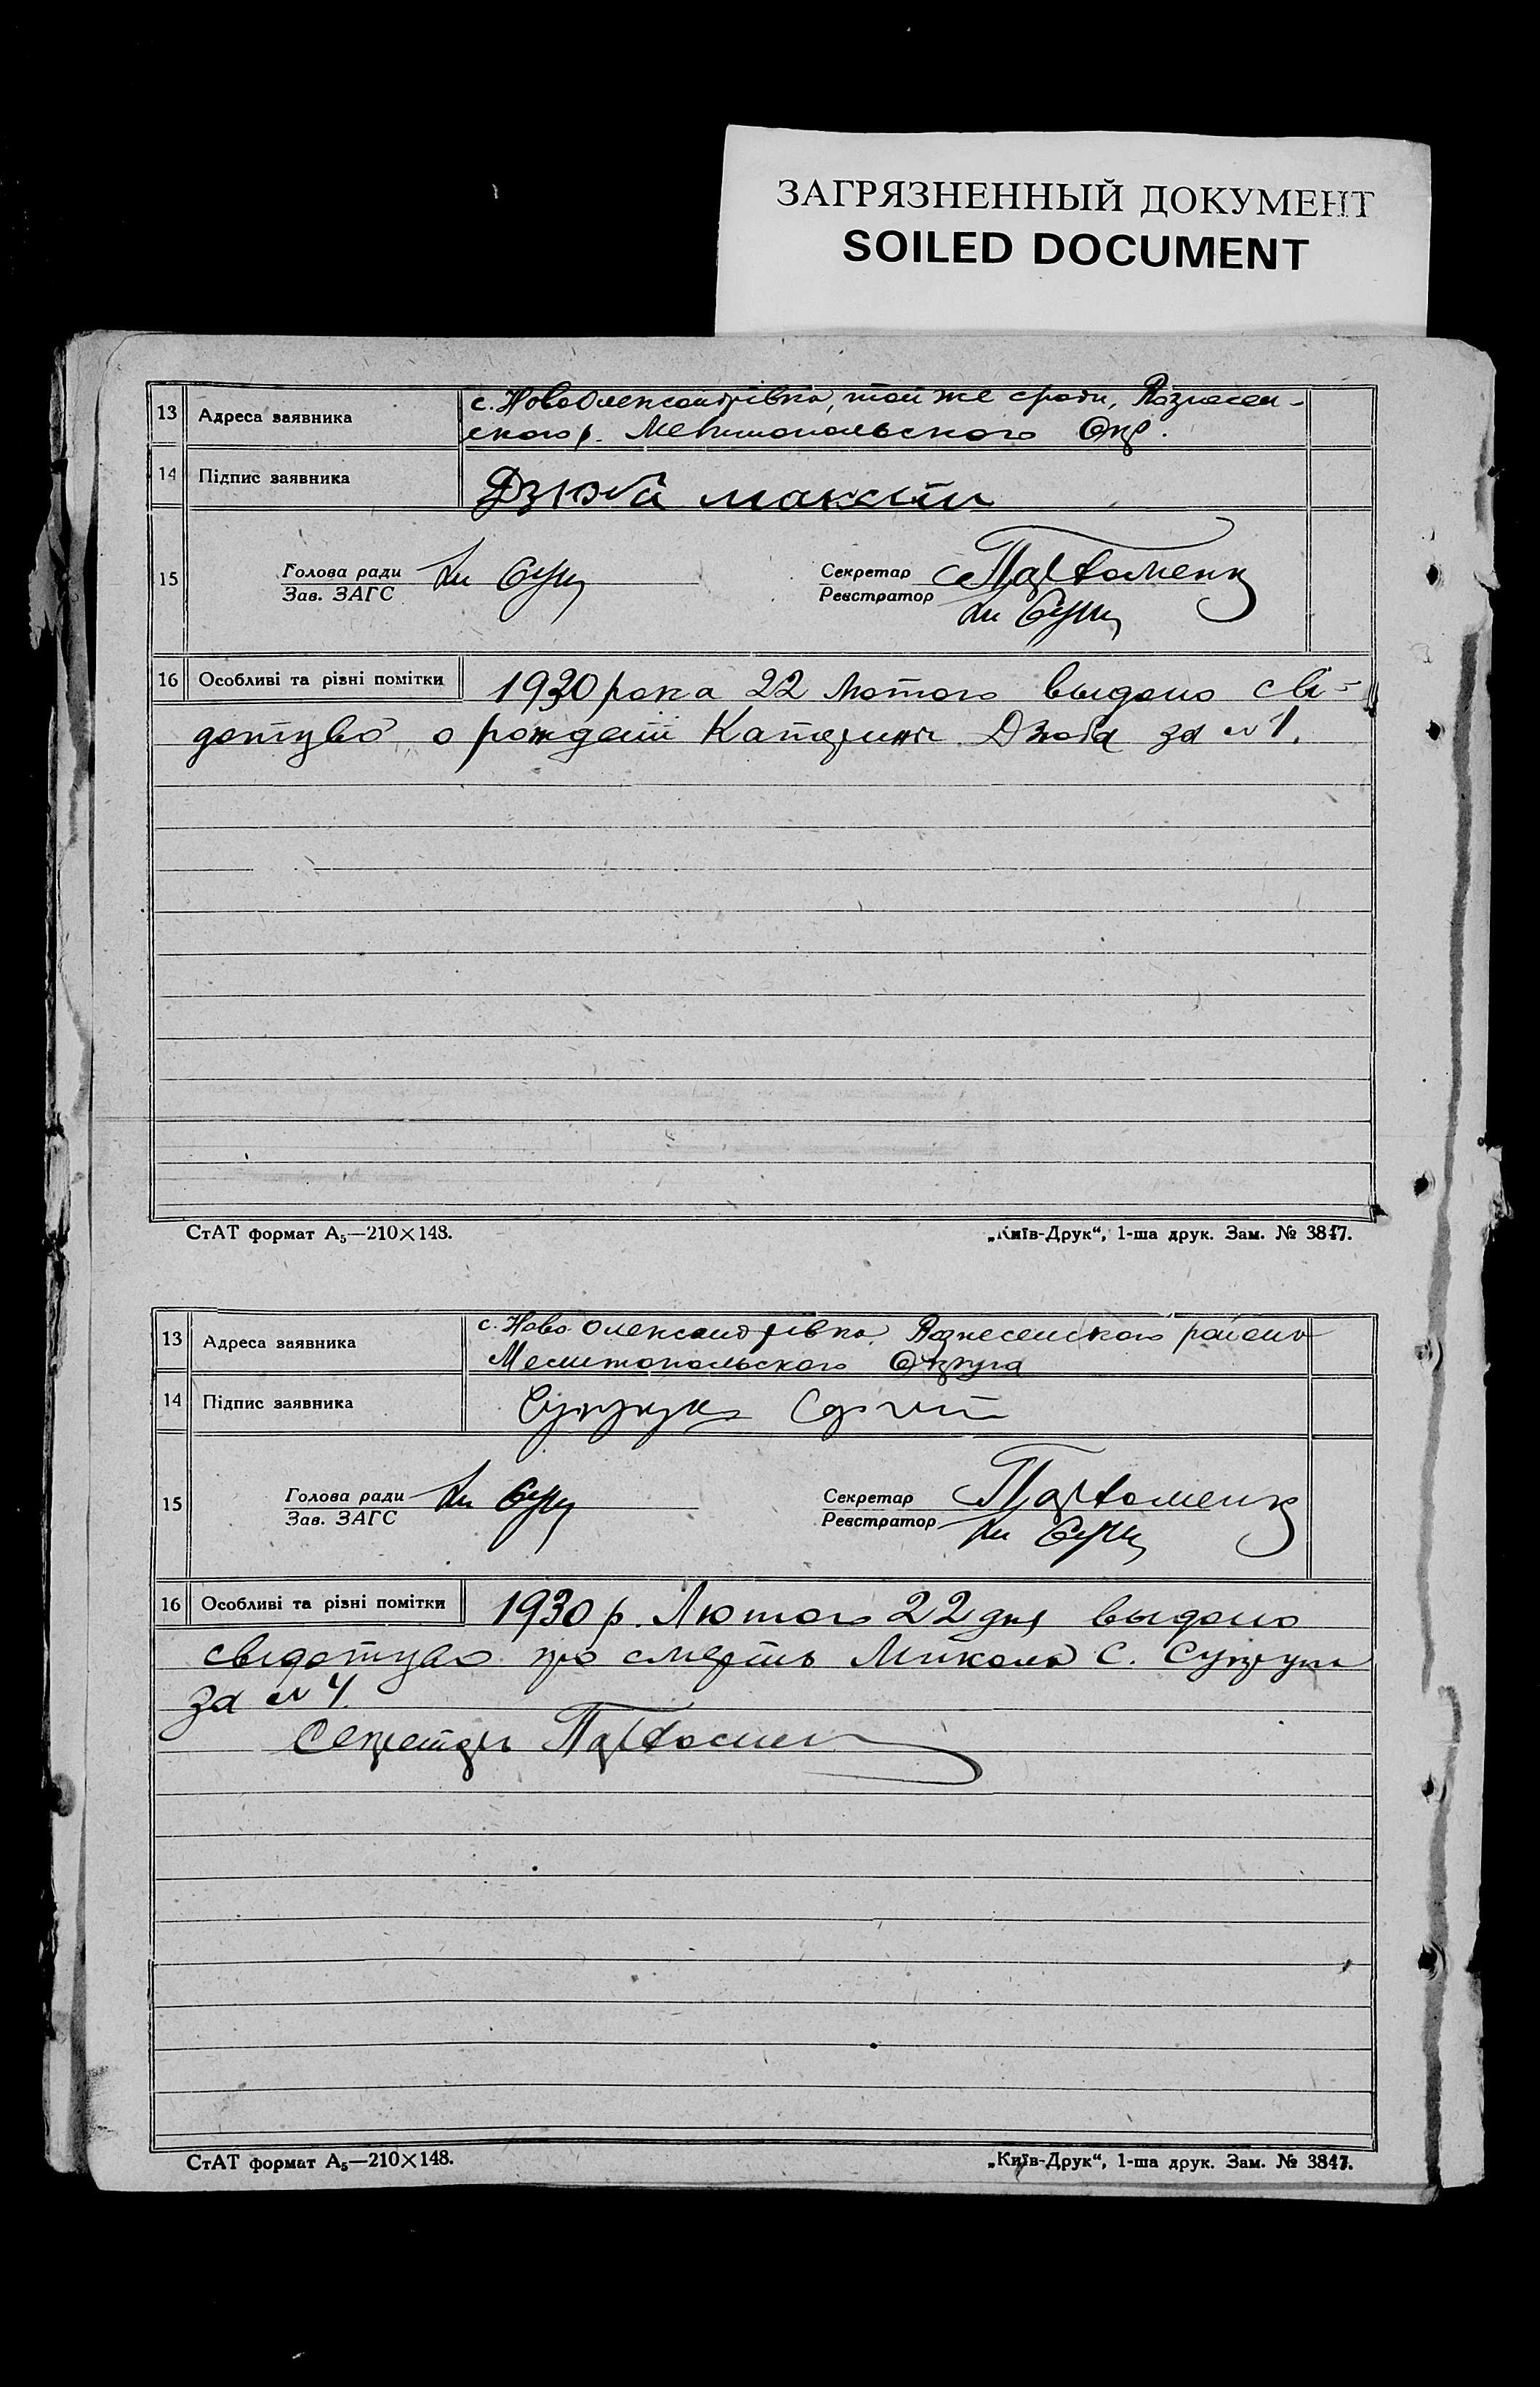 ЗАГРЯЗНЕННЫЙ ДОКУМЕНТ
SOILED DOCUMENT
13 Адреса заявника с. НовоОлександрівка, той же сради, Вознесен-
ского р. Мелитопольского Окр.
14 Підпис заявника Дзюба Максим
15 Голова ради Секретар Пархоменко
Зав. ЗАГС Реєстратор
16 Особливі та різні помітки 1930 рока 22 лютого выдано сві-
доцтво о рождении Катерини Дзюба за № 1.
СтАТ формат А₅—210×148. „Київ-Друк“, 1-ша друк. Зам. № 3847.
13 Адреса заявника с. Ново Олександрівка Вознесенского району
Мелитопольского Округа
14 Підпис заявника Сергій
15 Голова ради Секретар Пархоменко
Зав. ЗАГС Реєстратор
16 Особливі та різні помітки 1930 р. Лютого 22 дня выдано
свидотцво про смерть Микола С.
за № 4.
Секретарь Пархоменко
СтАТ формат А₅—210×148. „Київ-Друк“, 1-ша друк. Зам. № 3847.